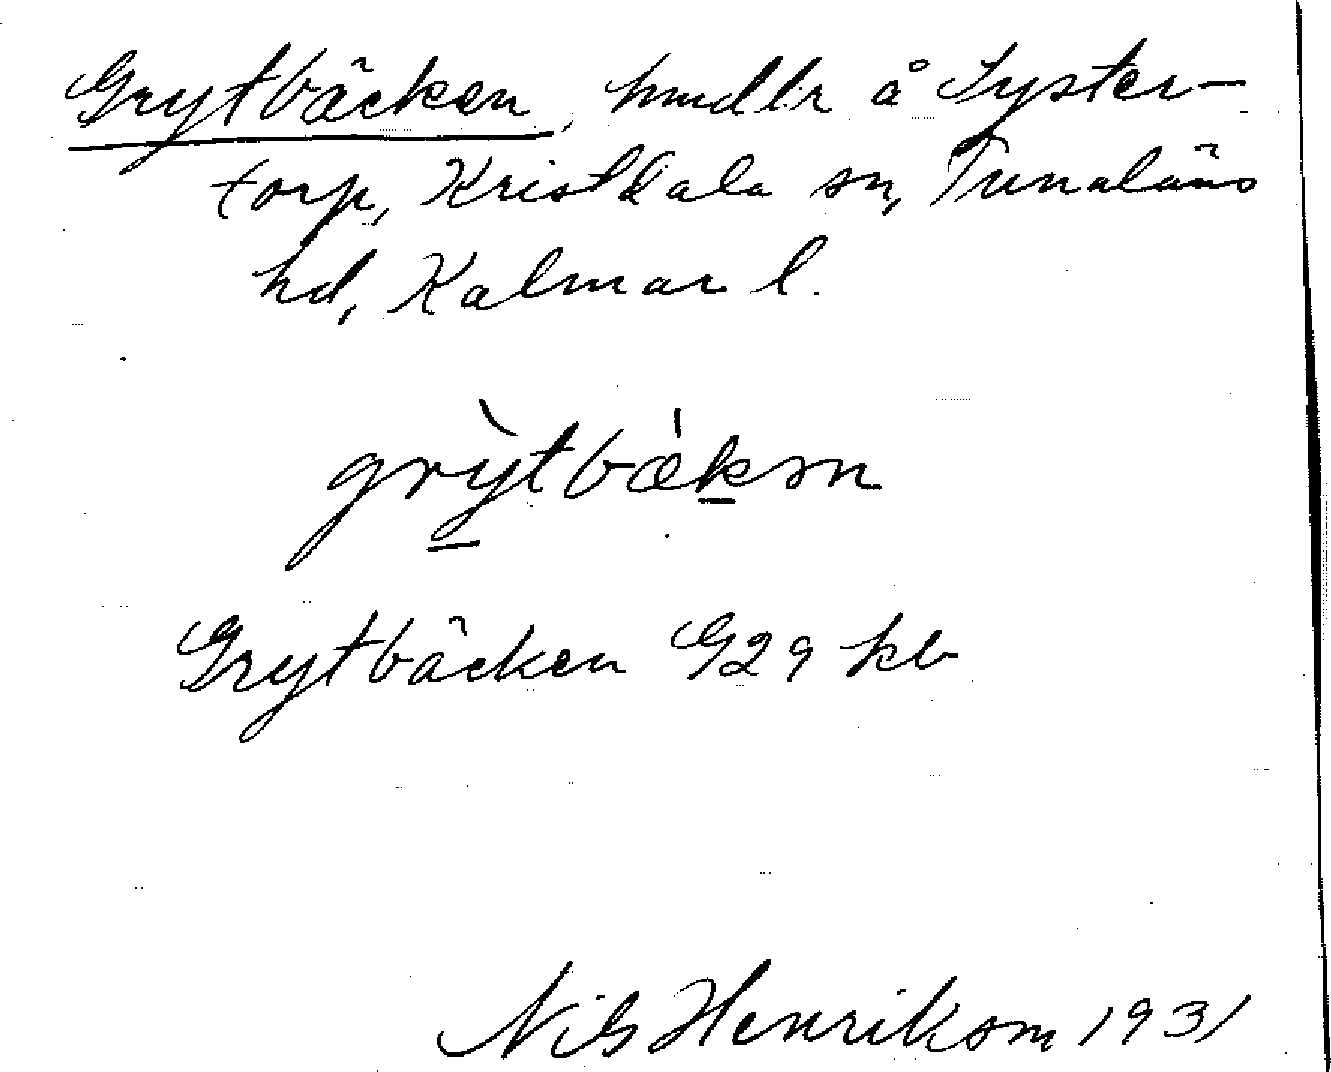 Grytbäcken, hmdlr å Syster-
torp, Kristdala sn, Tunaläns
hd, Kalmar l.
grỳtbæ̀kən
Grytbäcken G29 kb
Nils Henrikson 1931